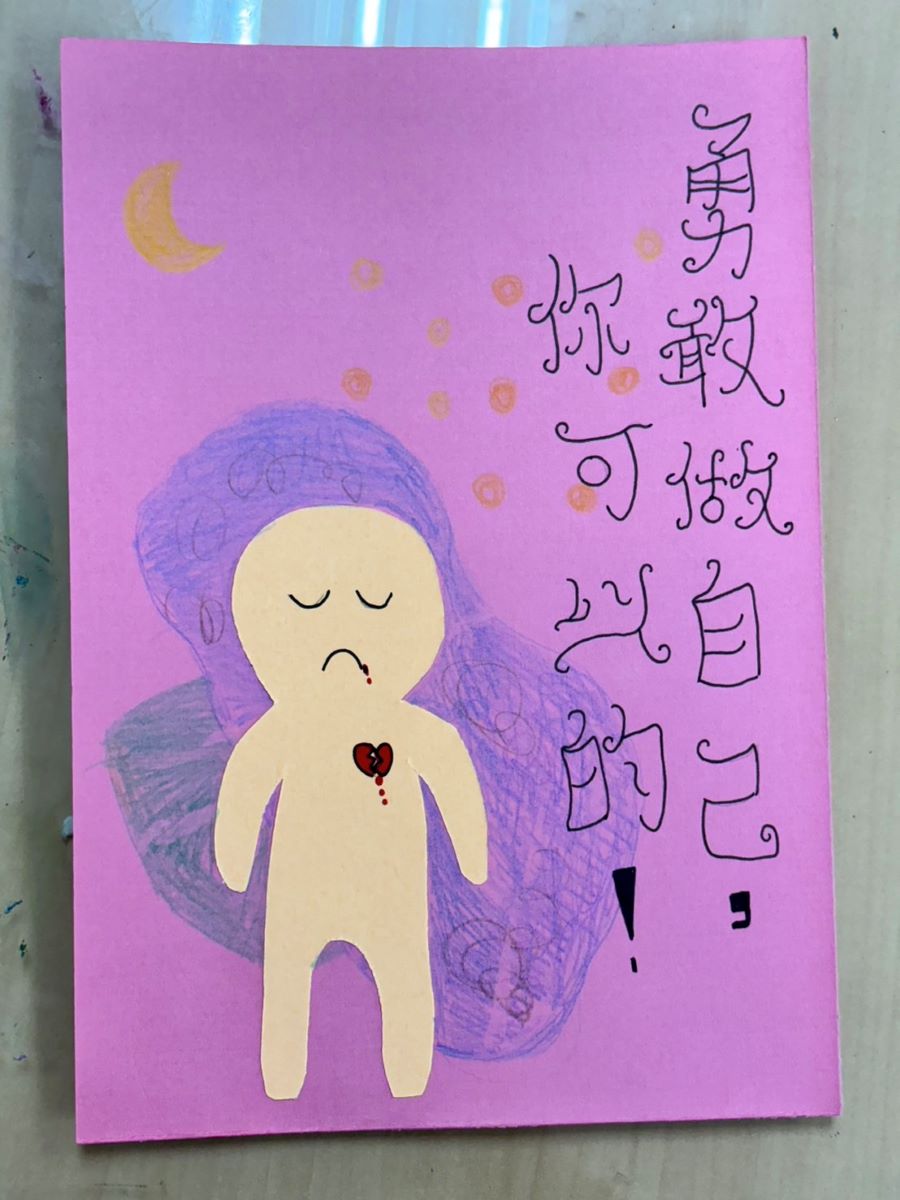 勇敢做自己，
你可以的！